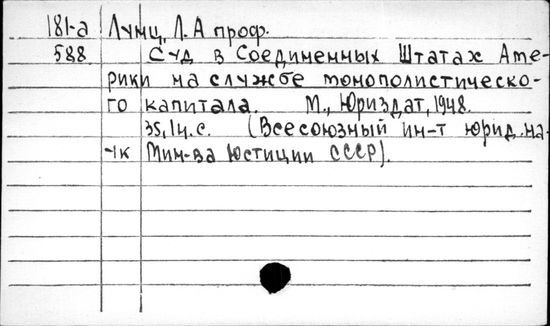 181-а Лунц, Л.А проф.
588 Суд в Соединенных Штатах Аме-
рики на службе монополистическо-
го капитала. М., Юриздат, 1948.
35,1ч.с. (Всесоюзный ин-т юрид. на-
-1к Мин-ва Юстиции СССР).